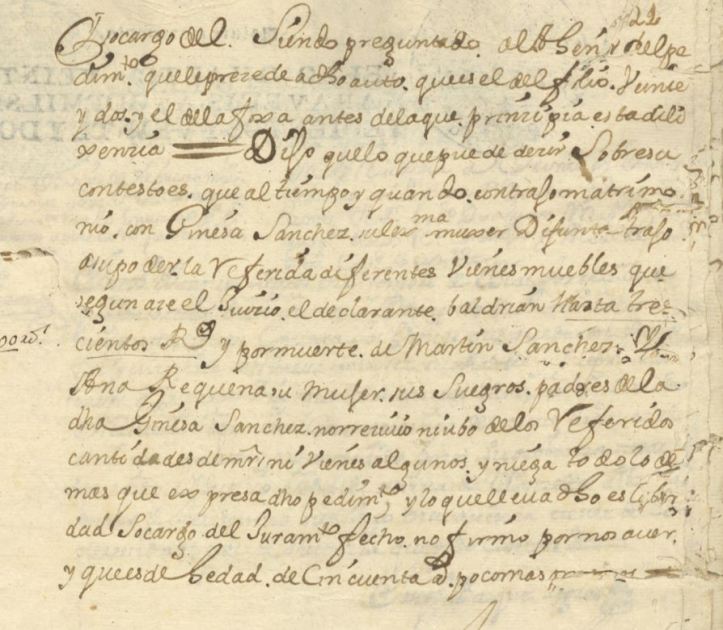 socargo del. Siendo preguntado al thenor del pe
dim.to que le prezede a dho auto. que es el del folio. Veinte
y dos. y el de la foxa antes de la que prinzipia esta dili
xenzia == Dijo que lo que puede dezir Sobre su
contesto es. que al tiempo y quando. contrajo matrimo
nio. con Ginesa Sanchez. su lex.ma muxer Difunta trajo
a su poder la Referida diferentes Vienes muebles que
segun aze el Juizio. el declarante. baldrian Hasta tre=
cientos R.s y por muerte. de Martin Sanchez.
Ana Requena su Mujer. sus Suegros. padres de la
dha Ginesa Sanchez. no rrezivio ni ubo de los Referidos
cantidades de mrs. ni Vienes algunos. y niega todo lo de
mas que expresa dho pedim.to y lo que lleva dho es la ver
dad Socargo del Juram.to fecho. no firmo por no saver.
y que es de hedad. de Cincuenta a.s poco mas